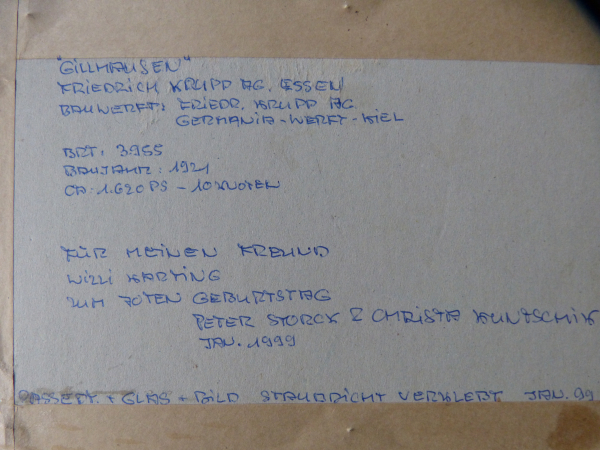 "GILLHAUSEN"
FRIEDRICH KRUPP AG. ESSEN
BAUWERFT: FRIEDR. KRUPP AG.
GERMANIA-WERFT-KIEL
BRT: 3955
BAUJAHR: 1921
CA: 1.620 PS - 10 KNOTEN
FÜR MEINEN FREUND
WILLI KARTING
ZUM 70TEN GEBURTSTAG
PETER STORCK & CHRISTA KUNTSCHIK
JAN. 1999
PASSEPT. + GLAS + BILD STAUBDICHT VERKLEBT JAN. 99